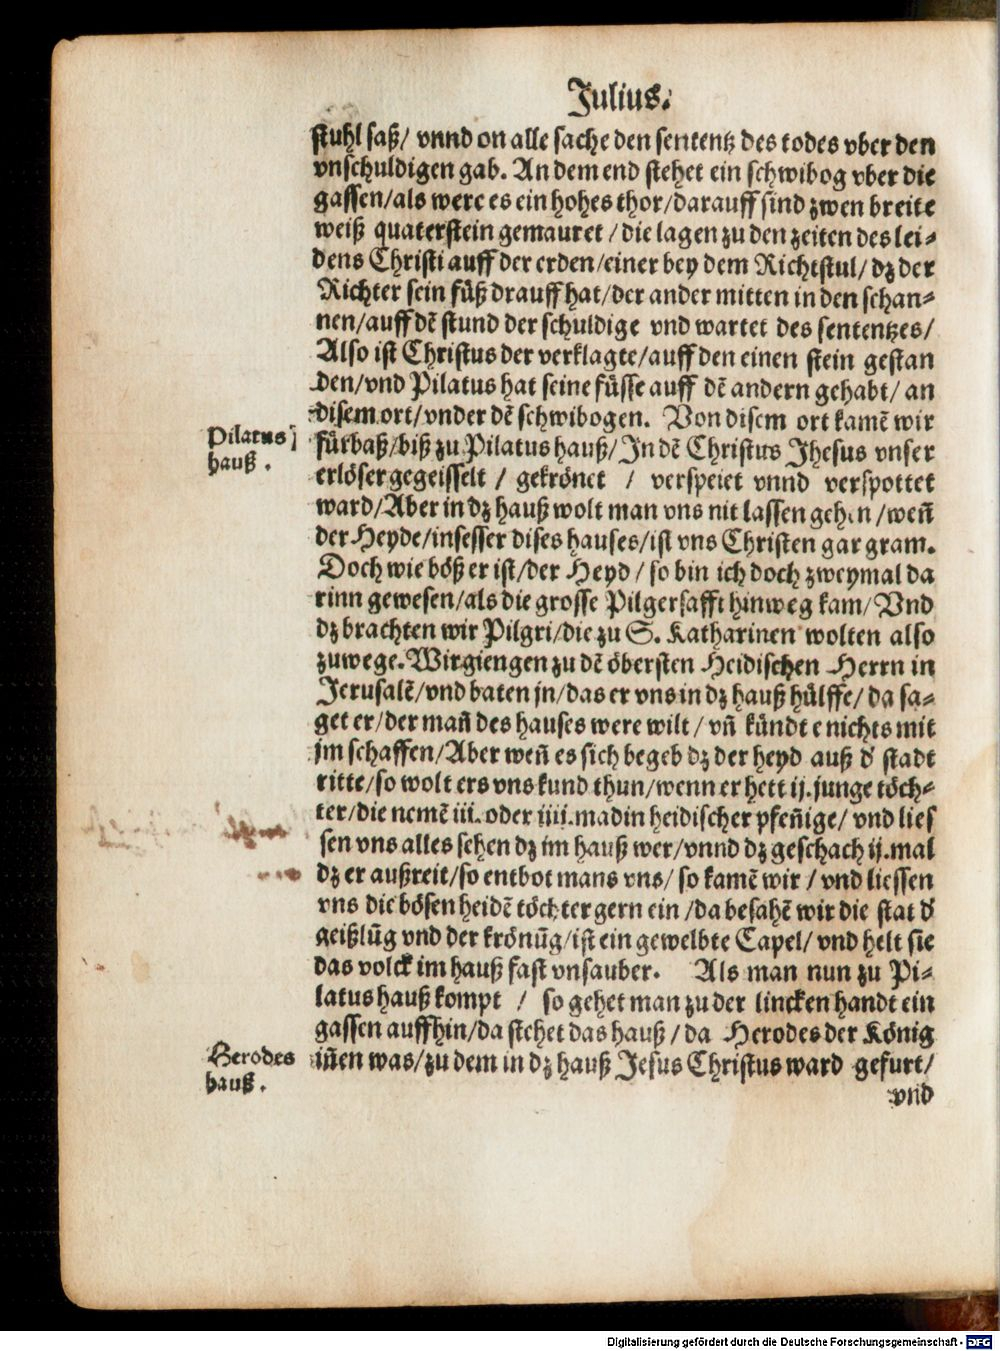 Julius.
stuhl saß/ vnnd on alle sache den sententz des todes vber den
vnschuldigen gab. An dem end stehet ein schwibog vber die
gassen/als were es ein hohes thor/darauff sind zwen breite
weiß quaterstein gemauret/die lagen zu den zeiten des lei⸗
dens Christi auff der erden/einer bey dem Richtstul/ dz der
Richter sein füß drauff hat/der ander mitten in den schan⸗
nen/auff dē stund der schuldige vnd wartet des sententzes/
Also ist Christus der verklagte/auff den einen stein gestan
den/vnd Pilatus hat seine füsse auff dē andern gehabt/ an
disem ort/vnder dē schwibogen. Von disem ort kamē wir
Pilatus
hauß.
fürbaß/biß zu Pilatus hauß/In dē Christus Jhesus vnser
erlöser gegeisselt / gekrönet / verspeiet vnnd verspottet
ward/Aber in dz hauß wolt man vns nit lassen gehen/weñ
der Heyde/insesser dises hauses/ist vns Christen gar gram.
Doch wie böß er ist/der Heyd/ so bin ich doch zweymal da
rinn gewesen/als die grosse Pilgersafft hinweg kam/ Vnd
dz brachten wir Pilgri/die zu S. Katharinen wolten also
zuwege. Wir giengen zu dē öbersten Heidischen Herrn in
Jerusalē/vnd baten jn/das er vns in dz hauß hülffe/ da sa⸗
get er/der mañ des hauses were wilt/ vñ kündte nichts mit
jm schaffen/Aber weñ es sich begeb dz der heyd auß d' stadt
ritte/so wolt ers vns kund thun/wenn er hett ij. junge töch⸗
ter/die nemē iii. oder iiii. madin heidischer pfeñige/ vnd lies
sen vns alles sehen dz im hauß wer/vnnd dz geschach ij. mal
dz er außreit/so entbot mans vns/ so kamē wir/ vnd liessen
vns die bösen heidē töchter gern ein/da besahē wir die stat d'
geißlūg vnd der krönūg/ist ein gewelbte Capel/ vnd helt sie
das volck im hauß fast vnsauber. Als man nun zu Pi⸗
latus hauß kompt / so gehet man zu der lincken handt ein
gassen auffhin/da stehet das hauß/ da Herodes der König
Herodes
hauß.
iñen was/zu dem in dz hauß Jesus Christus ward gefurt/
vnd
Digitalisierung gefördert durch die Deutsche Forschungsgemeinschaft - DFG